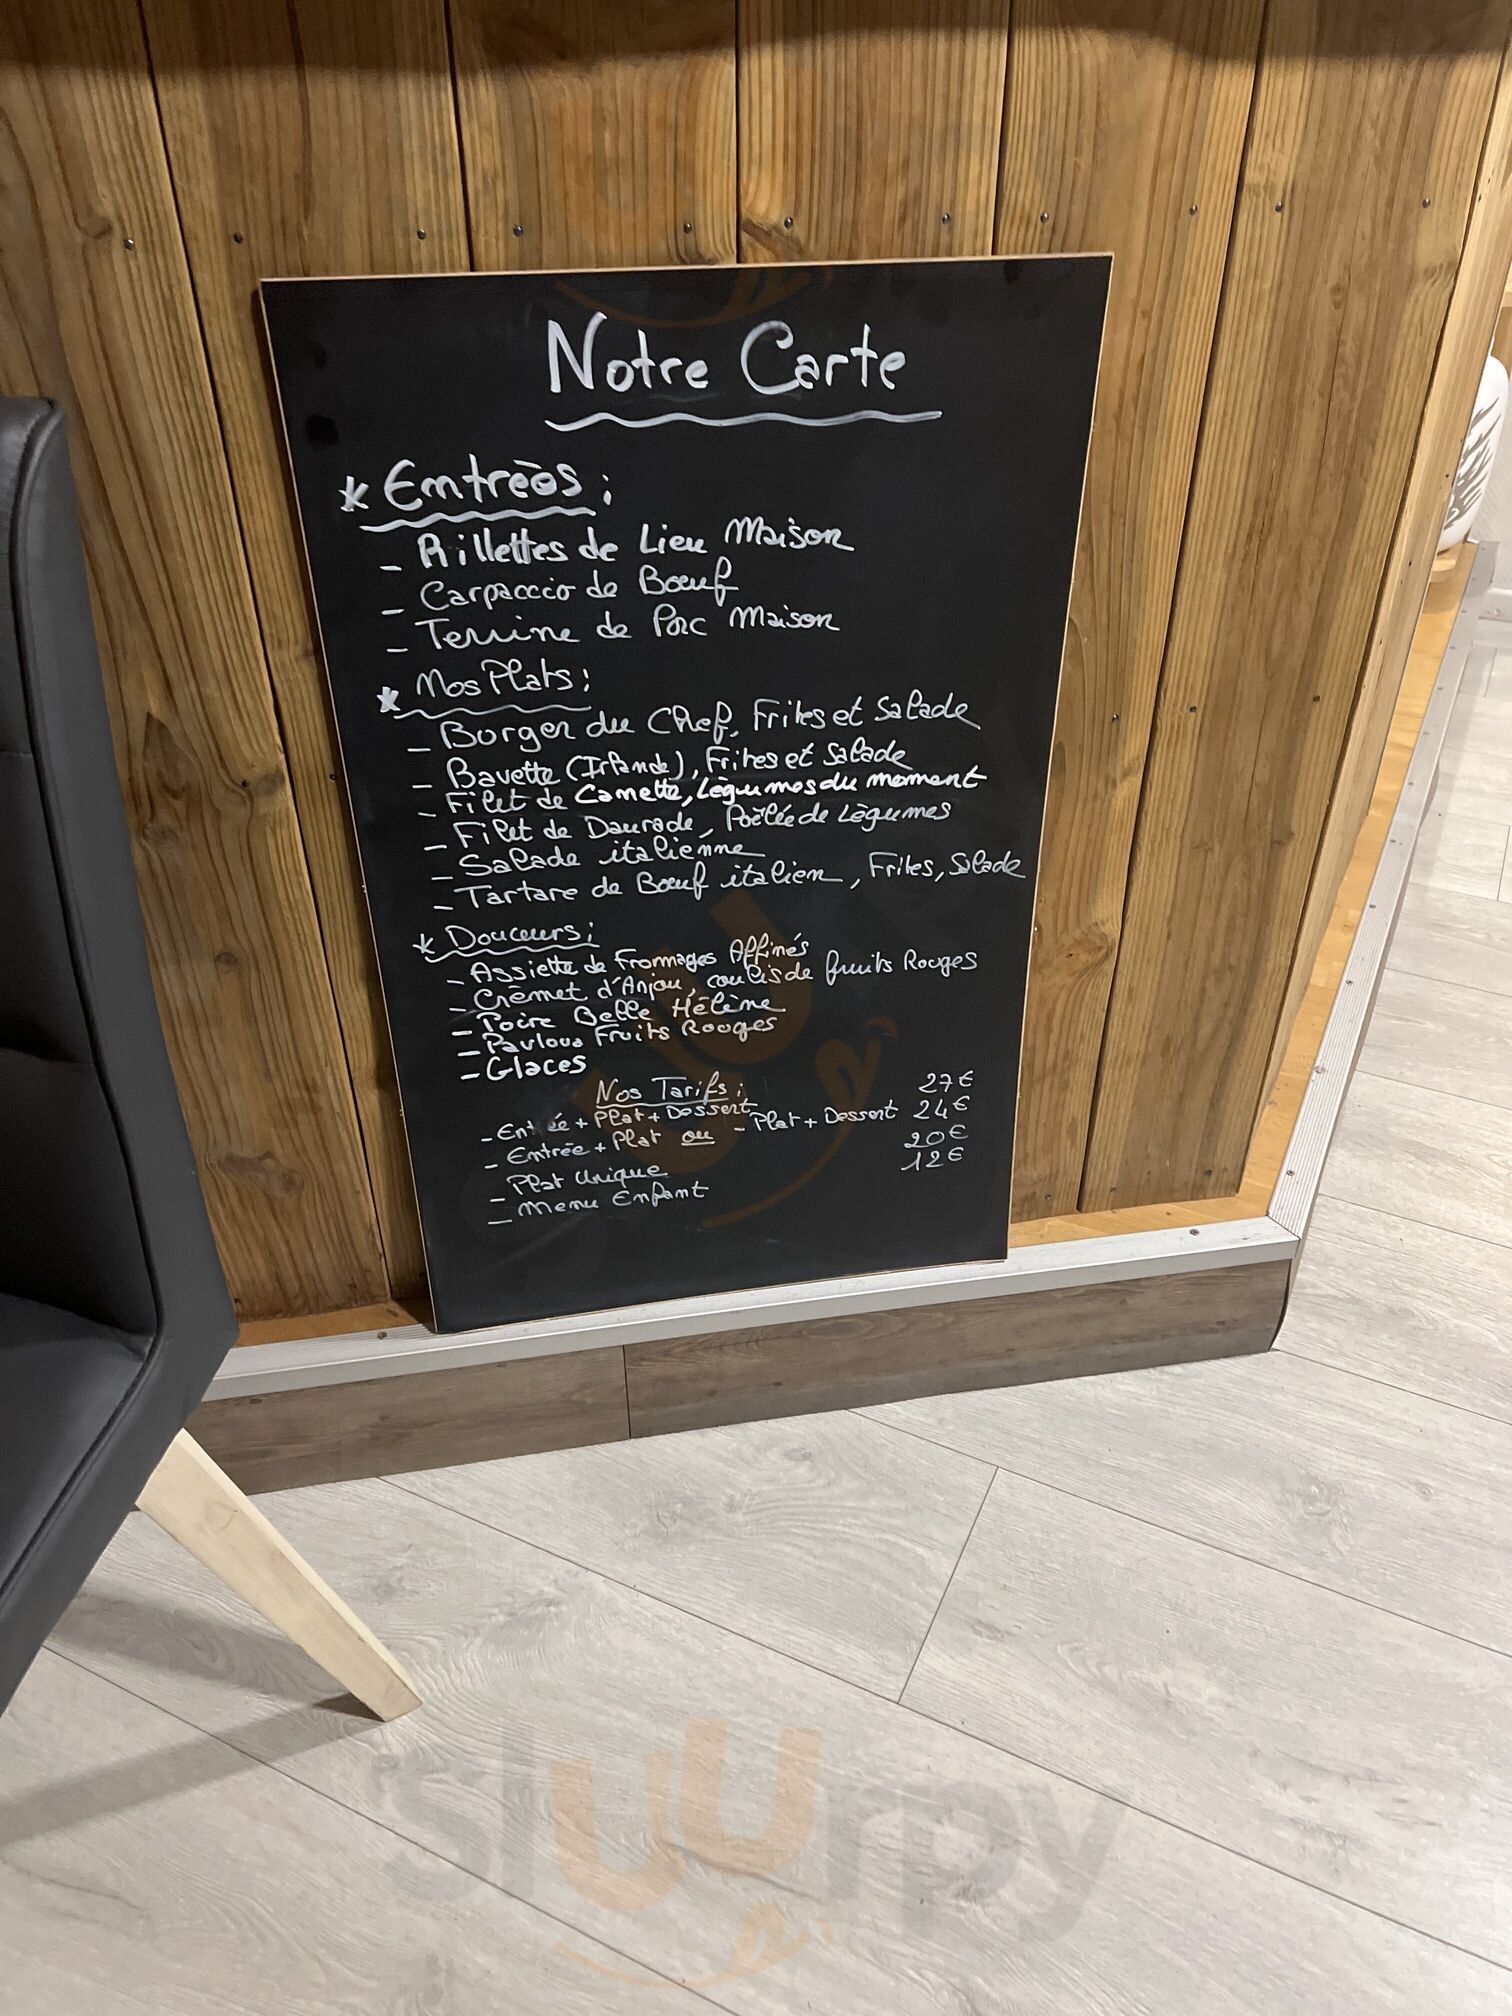 Notre Carte
* Entrées :
- Rillettes de Lieu Maison
- Carpaccio de Bœuf
- Terrine de Porc Maison
* Nos Plats :
- Burger du Chef, Frites et Salade
- Bavette (Irlande), Frites et Salade
- Filet de Canette, Légumes du moment
- Filet de Daurade, Poêlée de Légumes
- Salade italienne
- Tartare de Bœuf italien, Frites, Salade
* Douceurs :
- Assiette de Fromages Affinés
- Crèmet d'Anjou, coulis de fruits Rouges
- Poire Belle Hélène
- Pavlova Fruits Rouges
- Glaces
Nos Tarifs :
- Entrée + Plat + Dessert 27€
- Entrée + Plat ou - Plat + Dessert 24€
- Plat Unique 20€
- Menu Enfant 12€
sluurpy